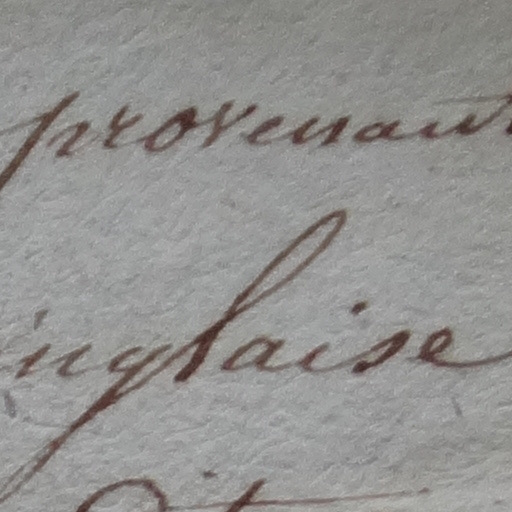 provenant
inglaise